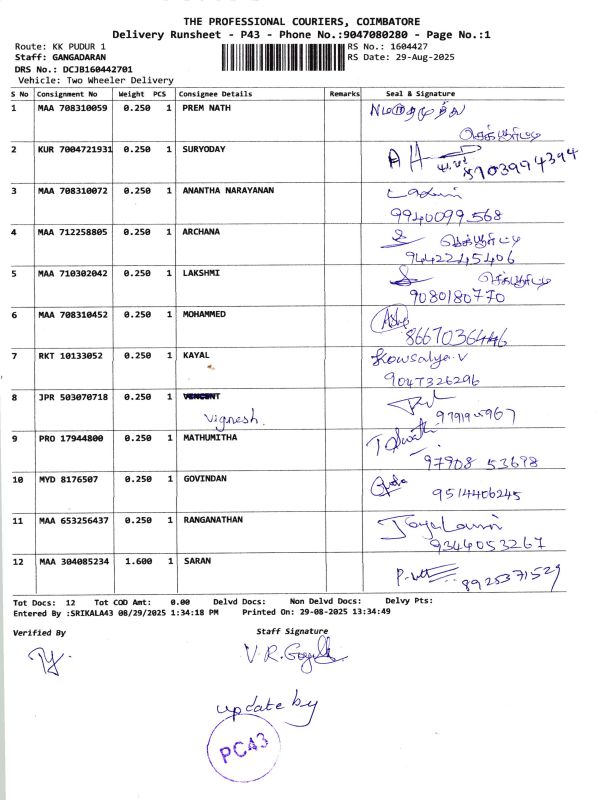 THE PROFESSIONAL COURIERS, COIMBATORE
Delivery Runsheet - P43 - Phone No.:9047080280 - Page No.:1
Route: KK PUDUR 1 RS No.: 1604427
Staff: GANGADARAN RS Date: 29-Aug-2025
DRS No.: DCJB160442701
Vehicle: Two Wheeler Delivery
S No Consignment No Weight PCS Consignee Details Remarks Seal & Signature
1 MAA 708310059 0.250 1 PREM NATH
2 KUR 7004721931 0.250 1 SURYODAY 8703994394
3 MAA 708310072 0.250 1 ANANTHA NARAYANAN
9940099568
4 MAA 712258805 0.250 1 ARCHANA
9442245406
5 MAA 710302042 0.250 1 LAKSHMI
9080180770
6 MAA 708310452 0.250 1 MOHAMMED
8667036446
7 RKT 10133052 0.250 1 KAYAL Kowsalya.V
9047326296
8 JPR 503070718 0.250 1
Vignesh.
9 PRO 17944800 0.250 1 MATHUMITHA
97908 53698
10 MYD 8176507 0.250 1 GOVINDAN
9514406245
11 MAA 653256437 0.250 1 RANGANATHAN
9344053267
12 MAA 304085234 1.600 1 SARAN
8925371529
Tot Docs: 12 Tot COD Amt: 0.00 Delvd Docs: Non Delvd Docs: Delvy Pts:
Entered By :SRIKALA43 08/29/2025 1:34:18 PM Printed On: 29-08-2025 13:34:49
Verified By Staff Signature
update by
PC43